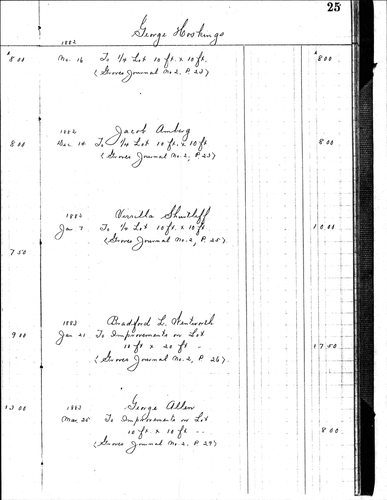 25
George Hoskings
1882
8 00 No. 16 To 1/4 Lot 10 ft. x 10 ft. 8 00
(Groves Journal No. 2, P. 23)
1882 Jacob Amberg
8 00 Dec 14 To 1/4 Lot 10 ft. x 10 ft 8 00
(Groves Journal No. 2, P. 23)
1882 Shurtleff
Jan 7 To 1/4 Lot 10 ft. x 10 ft. 10 00
(Groves Journal No. 2, P. 25)
7 50
1883 Bradford L. Wentworth
9 00 Jan 21 To Improvements on Lot
10 ft x 20 ft " 17 50
(Groves Journal No. 2, P. 26)
13 00 1883 George Allen
Mar. 25 To Improvements on Lot
10 ft. x 10 ft " 8 00
(Groves Journal No. 2, P. 29)